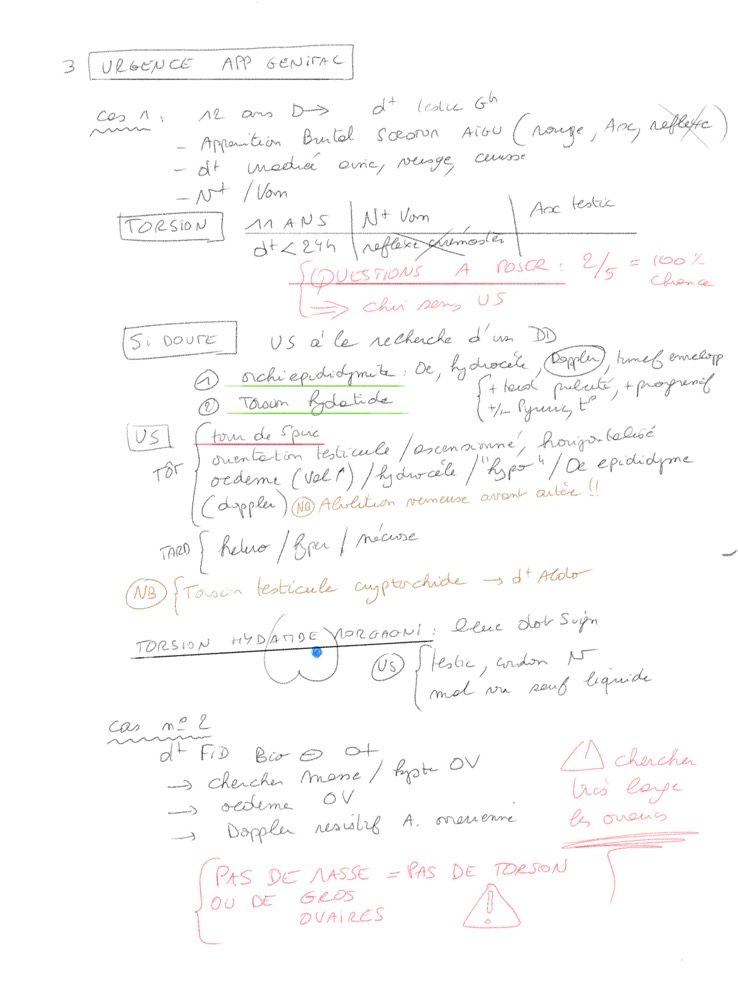 3 URGENCE APP GENITAL
cas 1 : 12 ans D → d+ testic Gh
- Apparition Brutal Scrotum AIGU (rouge, Asc, reflexe)
- d+ irradié aine, verge, cuisse
- N+ / Vom
TORSION 11 ANS N+ Vom Asc testic
d+ < 24h reflexe crémaster
QUESTIONS A POSER : 2/5 = 100%
chance
⇒ chir sans US
SI DOUTE US à la recherche d'un DD
① orchiepididymite : Oe, hydrocèle, Doppler, tumef envelopp
② Torsion hydatide + tard puberté, + progressif
+/- Pyurie, t°
US tour de spire
TÔT orientation testicule / ascensionné, horizontalisé
oedeme (Vol ↑) / hydrocèle / "hypo" / Oe epididyme
(doppler) NB Abolition veineuse avant artère !!
TARD hetero / hyper / nécrose
NB Torsion testicule cryptorchide → d+ Abdo
TORSION HYDATIDE MORGAGNI : blue dot Sign
US testic, cordon N
mal vu sauf liquide
cas n° 2
d+ FID Bio ⊖
→ chercher masse / kyste OV
→ oedeme OV
→ Doppler resistif A. ovarienne
⚠ chercher
très large
les ovaires
PAS DE MASSE = PAS DE TORSION
OU DE GROS
OVAIRES
!